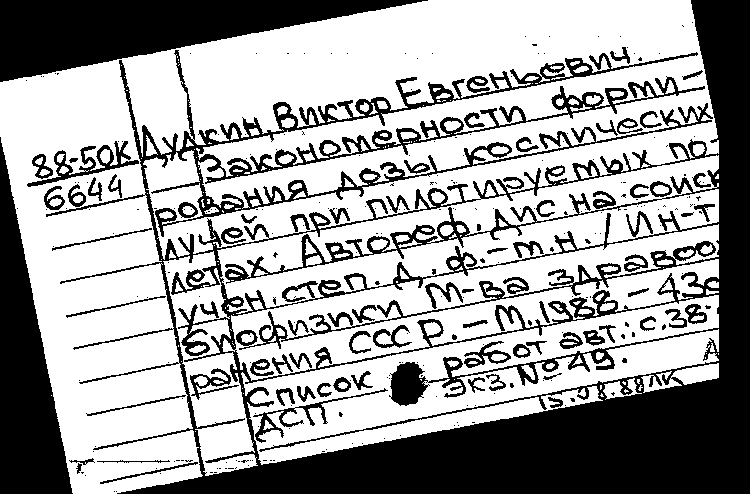 88-50К Дудкин, Виктор Евгеньевич.
6644 Закономерности форми-
рования дозы космических
лучей при пилотируемых по-
летах: Автореф. дис. на соиск
учен. степ. д. ф.-м.н. / Ин-т
биофизики М-ва здравоо
ранения СССР. - М., 1988. - 43с
Список работ авт.: с. 38-
ДСП. Экз. № 49.
15.08.88лк